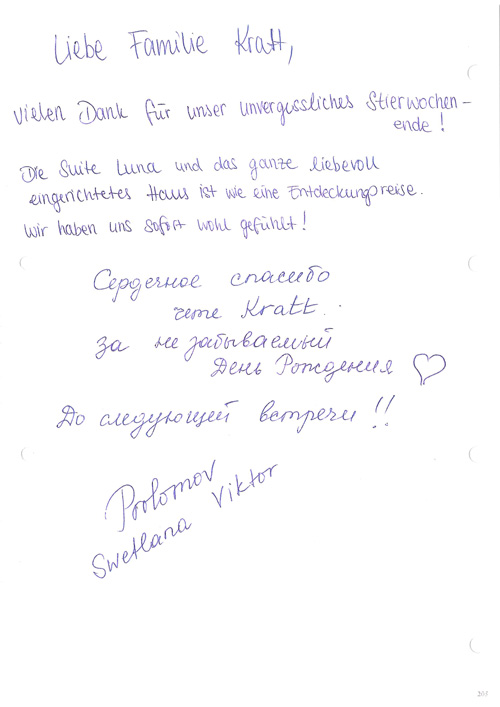 Liebe Familie Kratt,
vielen Dank für unser unvergessliches Stierwochen-
ende!
Die Suite Luna und das ganze liebevoll
eingerichtetes Haus ist wie eine Entdeckungreise.
Wir haben uns sofort wohl gefühlt!
Сердечное спасибо
чете Kratt.
за не забываемый
День Рождения
До следующей встречи!!
Swetlana Viktor